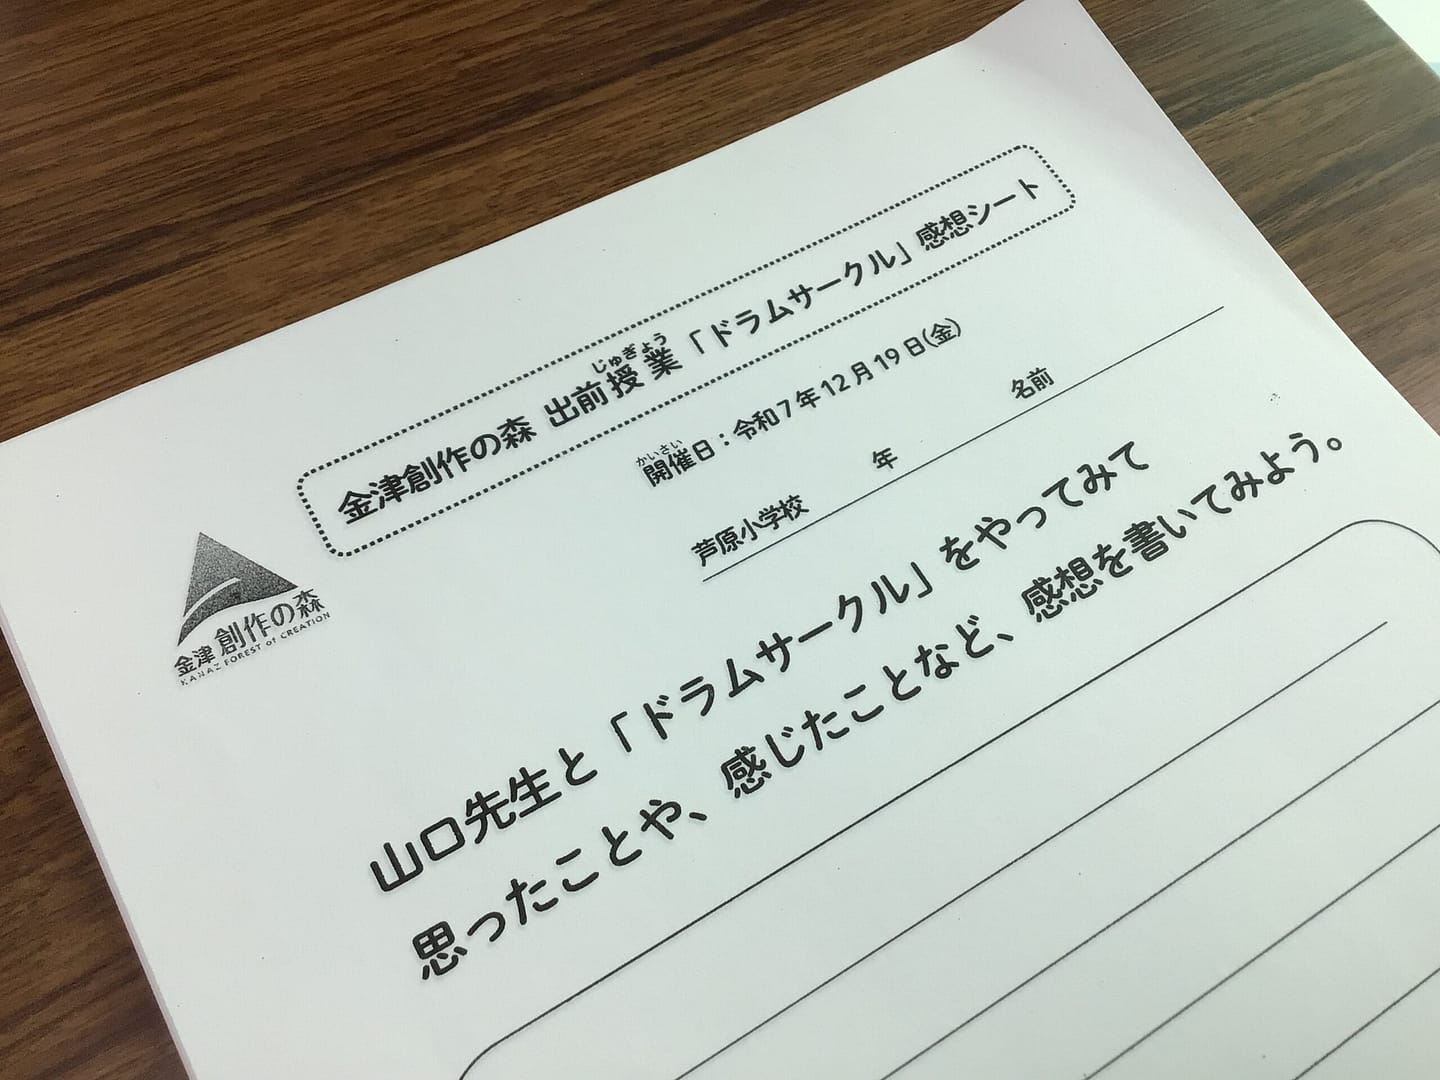 金津創作の森 出前授業「ドラムサークル」感想シート
じゅぎょう
開催日：令和7年12月19日(金)
かいさい
芦原小学校 年 名前
金津 創作の森
KANAZ FOREST of CREATION
山口先生と「ドラムサークル」をやってみて
思ったことや、感じたことなど、感想を書いてみよう。